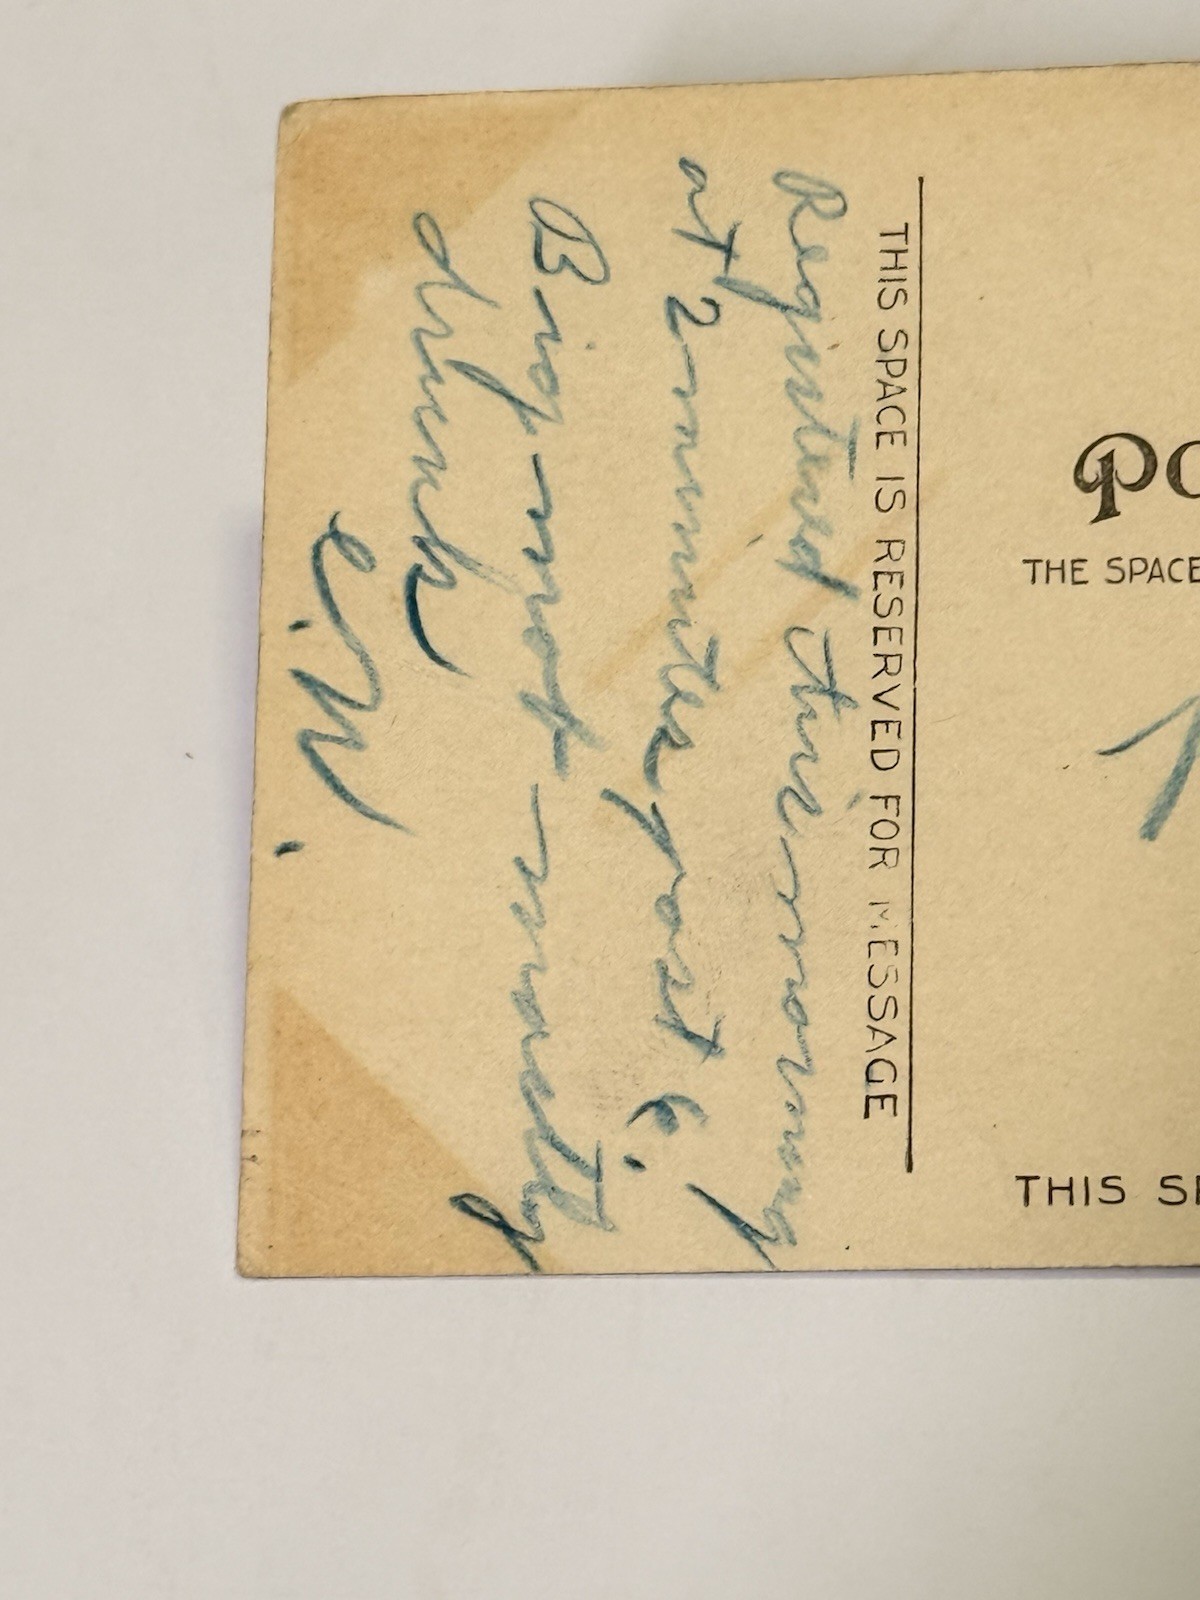 THIS SPACE IS RESERVED FOR MESSAGE
Registered this morning
at 2 minutes past 6.
Big mob - mostly
drunk
E.W.
PO
THE SPACE
THIS SP